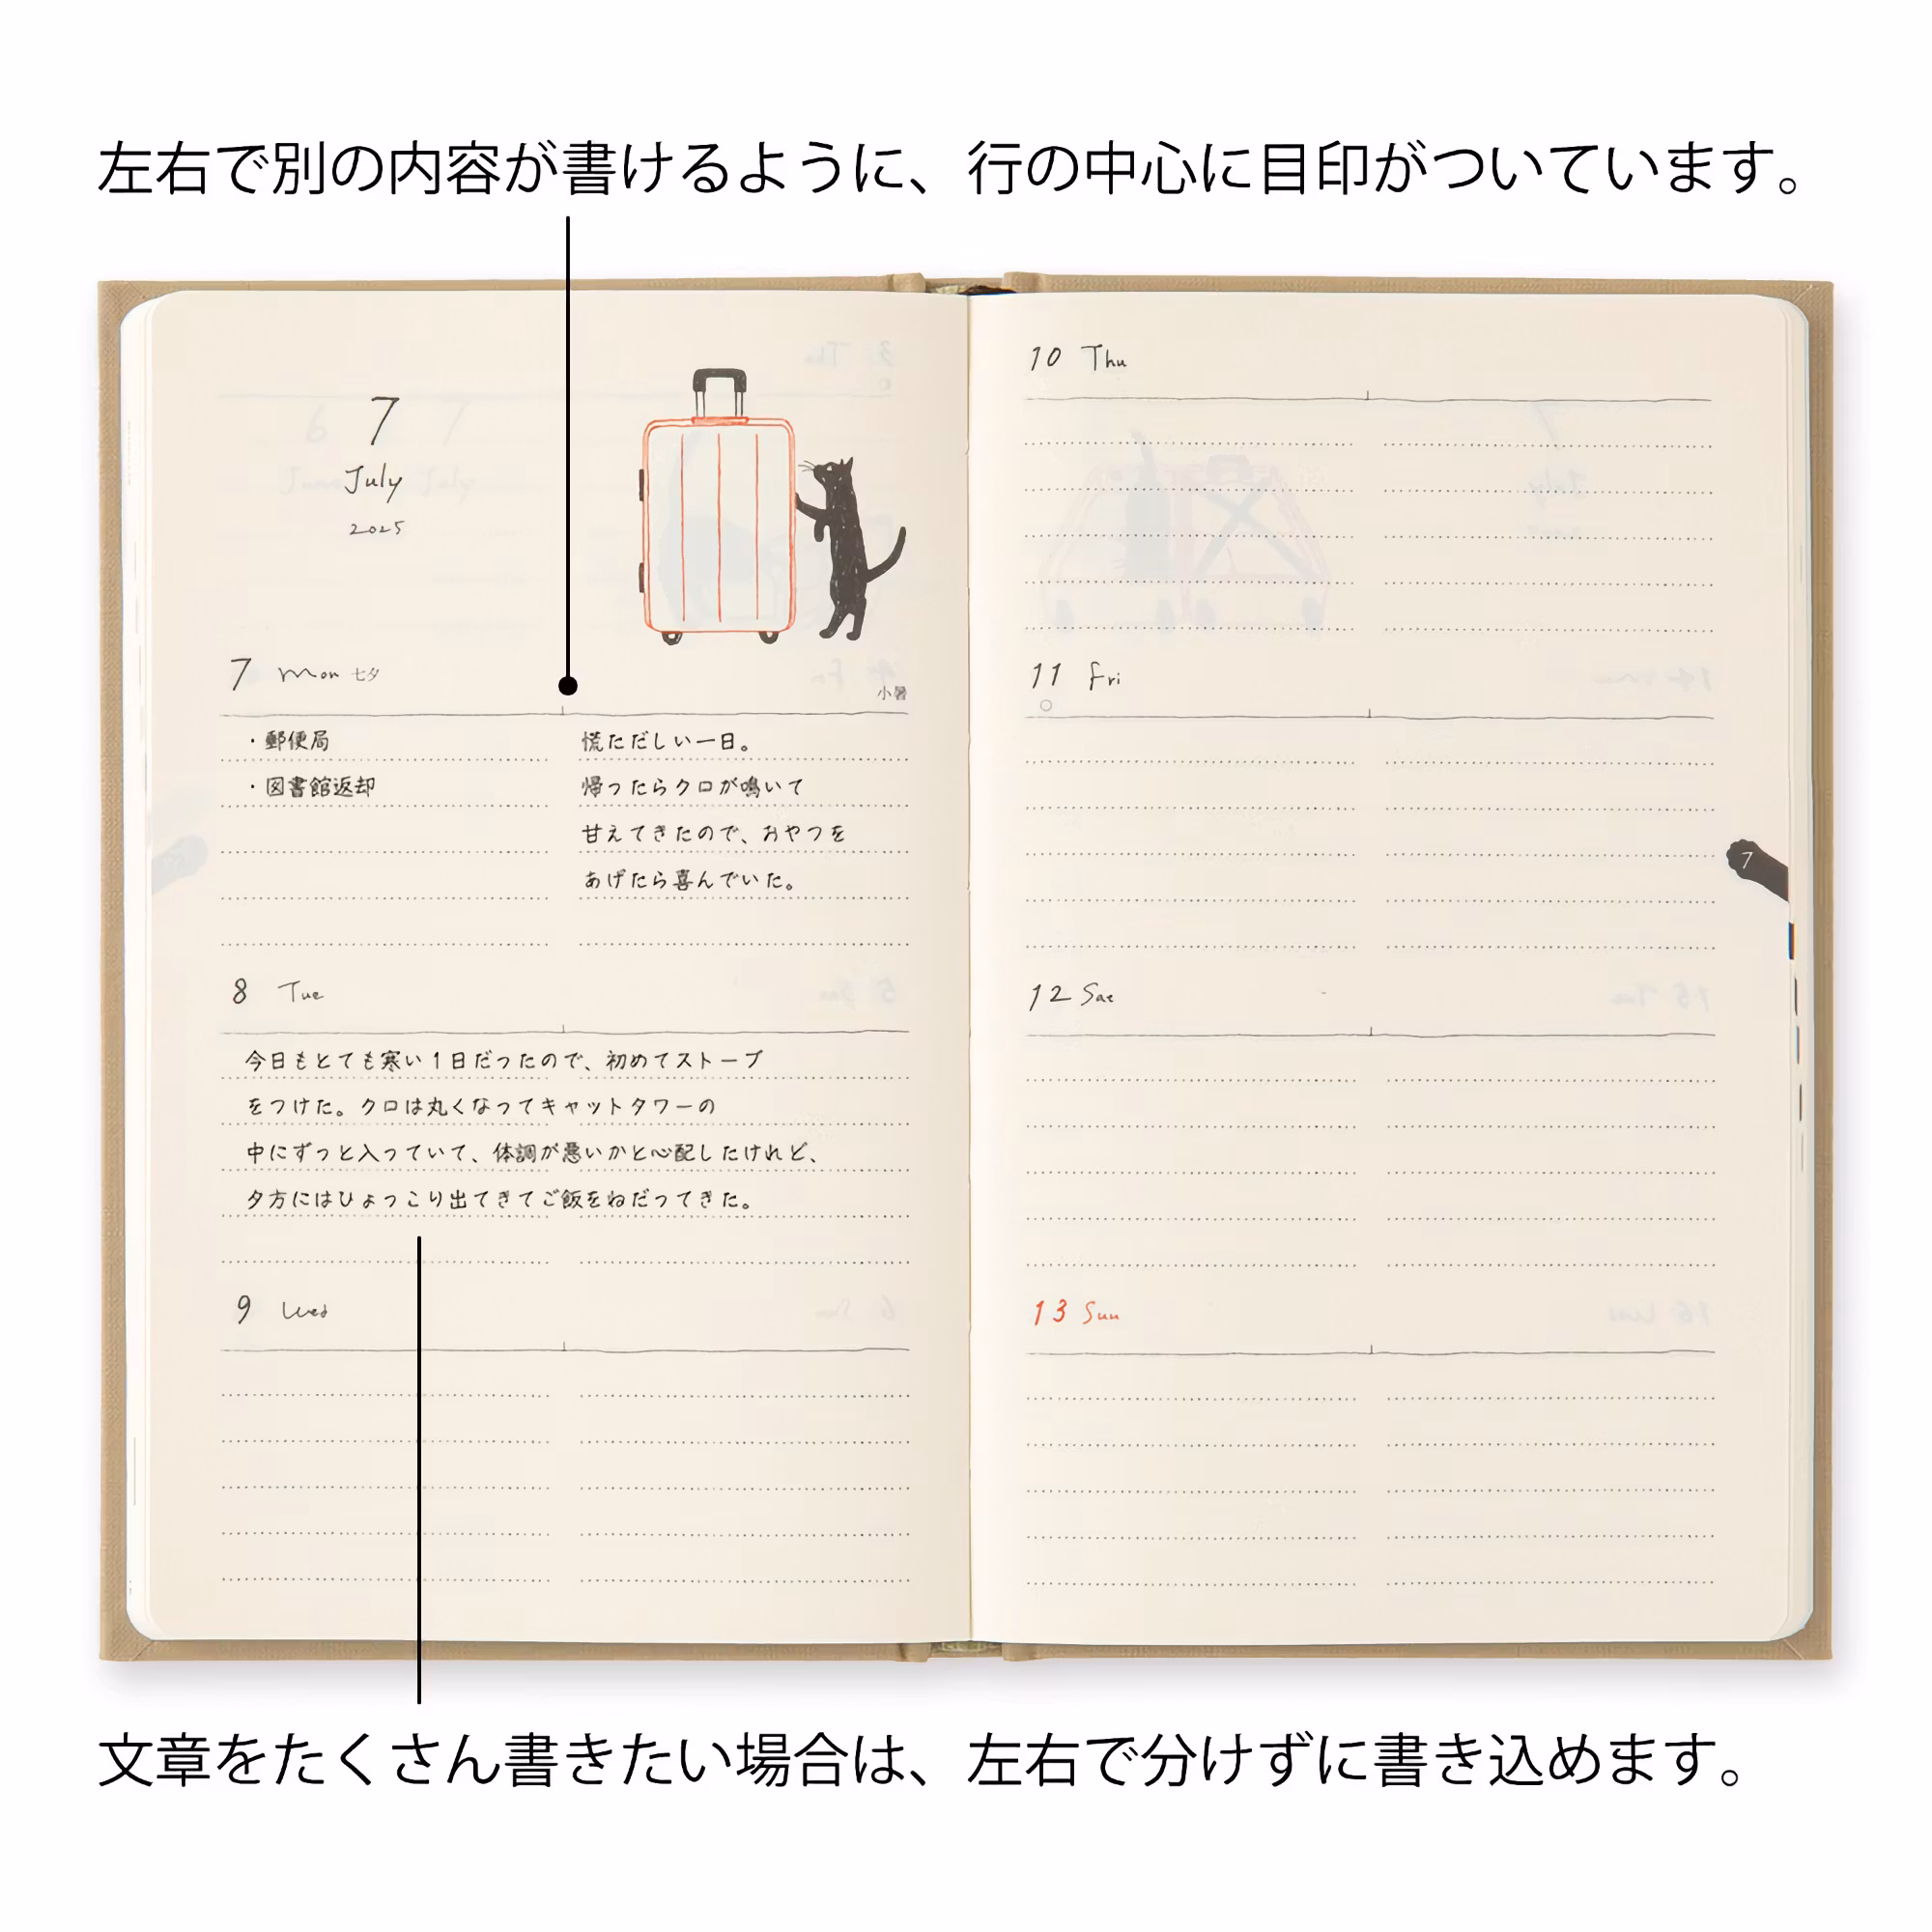 左右で別の内容が書けるように、行の中心に目印がついています。
7
July
2025
7 Mon 七夕
小暑
・郵便局
・図書館返却
慌ただしい一日。
帰ったらクロが鳴いて
甘えてきたので、おやつを
あげたら喜んでいた。
8 Tue
今日もとても寒い1日だったので、初めてストーブ
をつけた。クロは丸くなってキャットタワーの
中にずっと入っていて、体調が悪いかと心配したけれど、
夕方にはひょっこり出てきてご飯をねだってきた。
9 Wed
10 Thu
11 Fri
7
12 Sat
13 Sun
文章をたくさん書きたい場合は、左右で分けずに書き込めます。